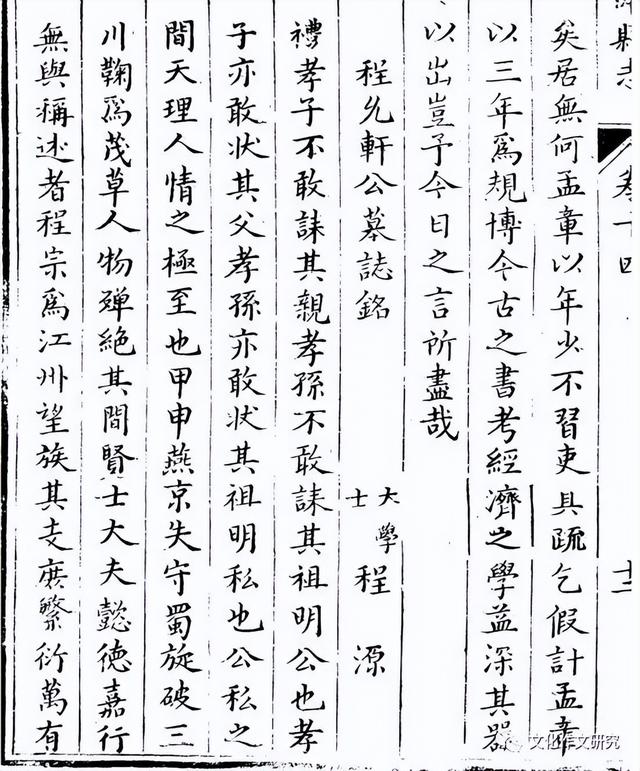 卷十四
十二
矣居無何孟章以年少不習吏具疏乞假計孟章
以三年為規博今古之書考經濟之學益深其器
以出豈予今日之言所盡哉
程允軒公墓誌銘
大學士程源
禮孝子不敢誄其親孝孫不敢誄其祖明公也孝
子亦敢狀其父孝孫亦敢狀其祖明私也公私之
間天理人情之極至也甲申燕京失守蜀旋破三
川鞠為茂草人物殫絕其間賢士大夫懿德嘉行
無與稱述者程宗為江州望族其支庶繁衍萬有
文化作文研究